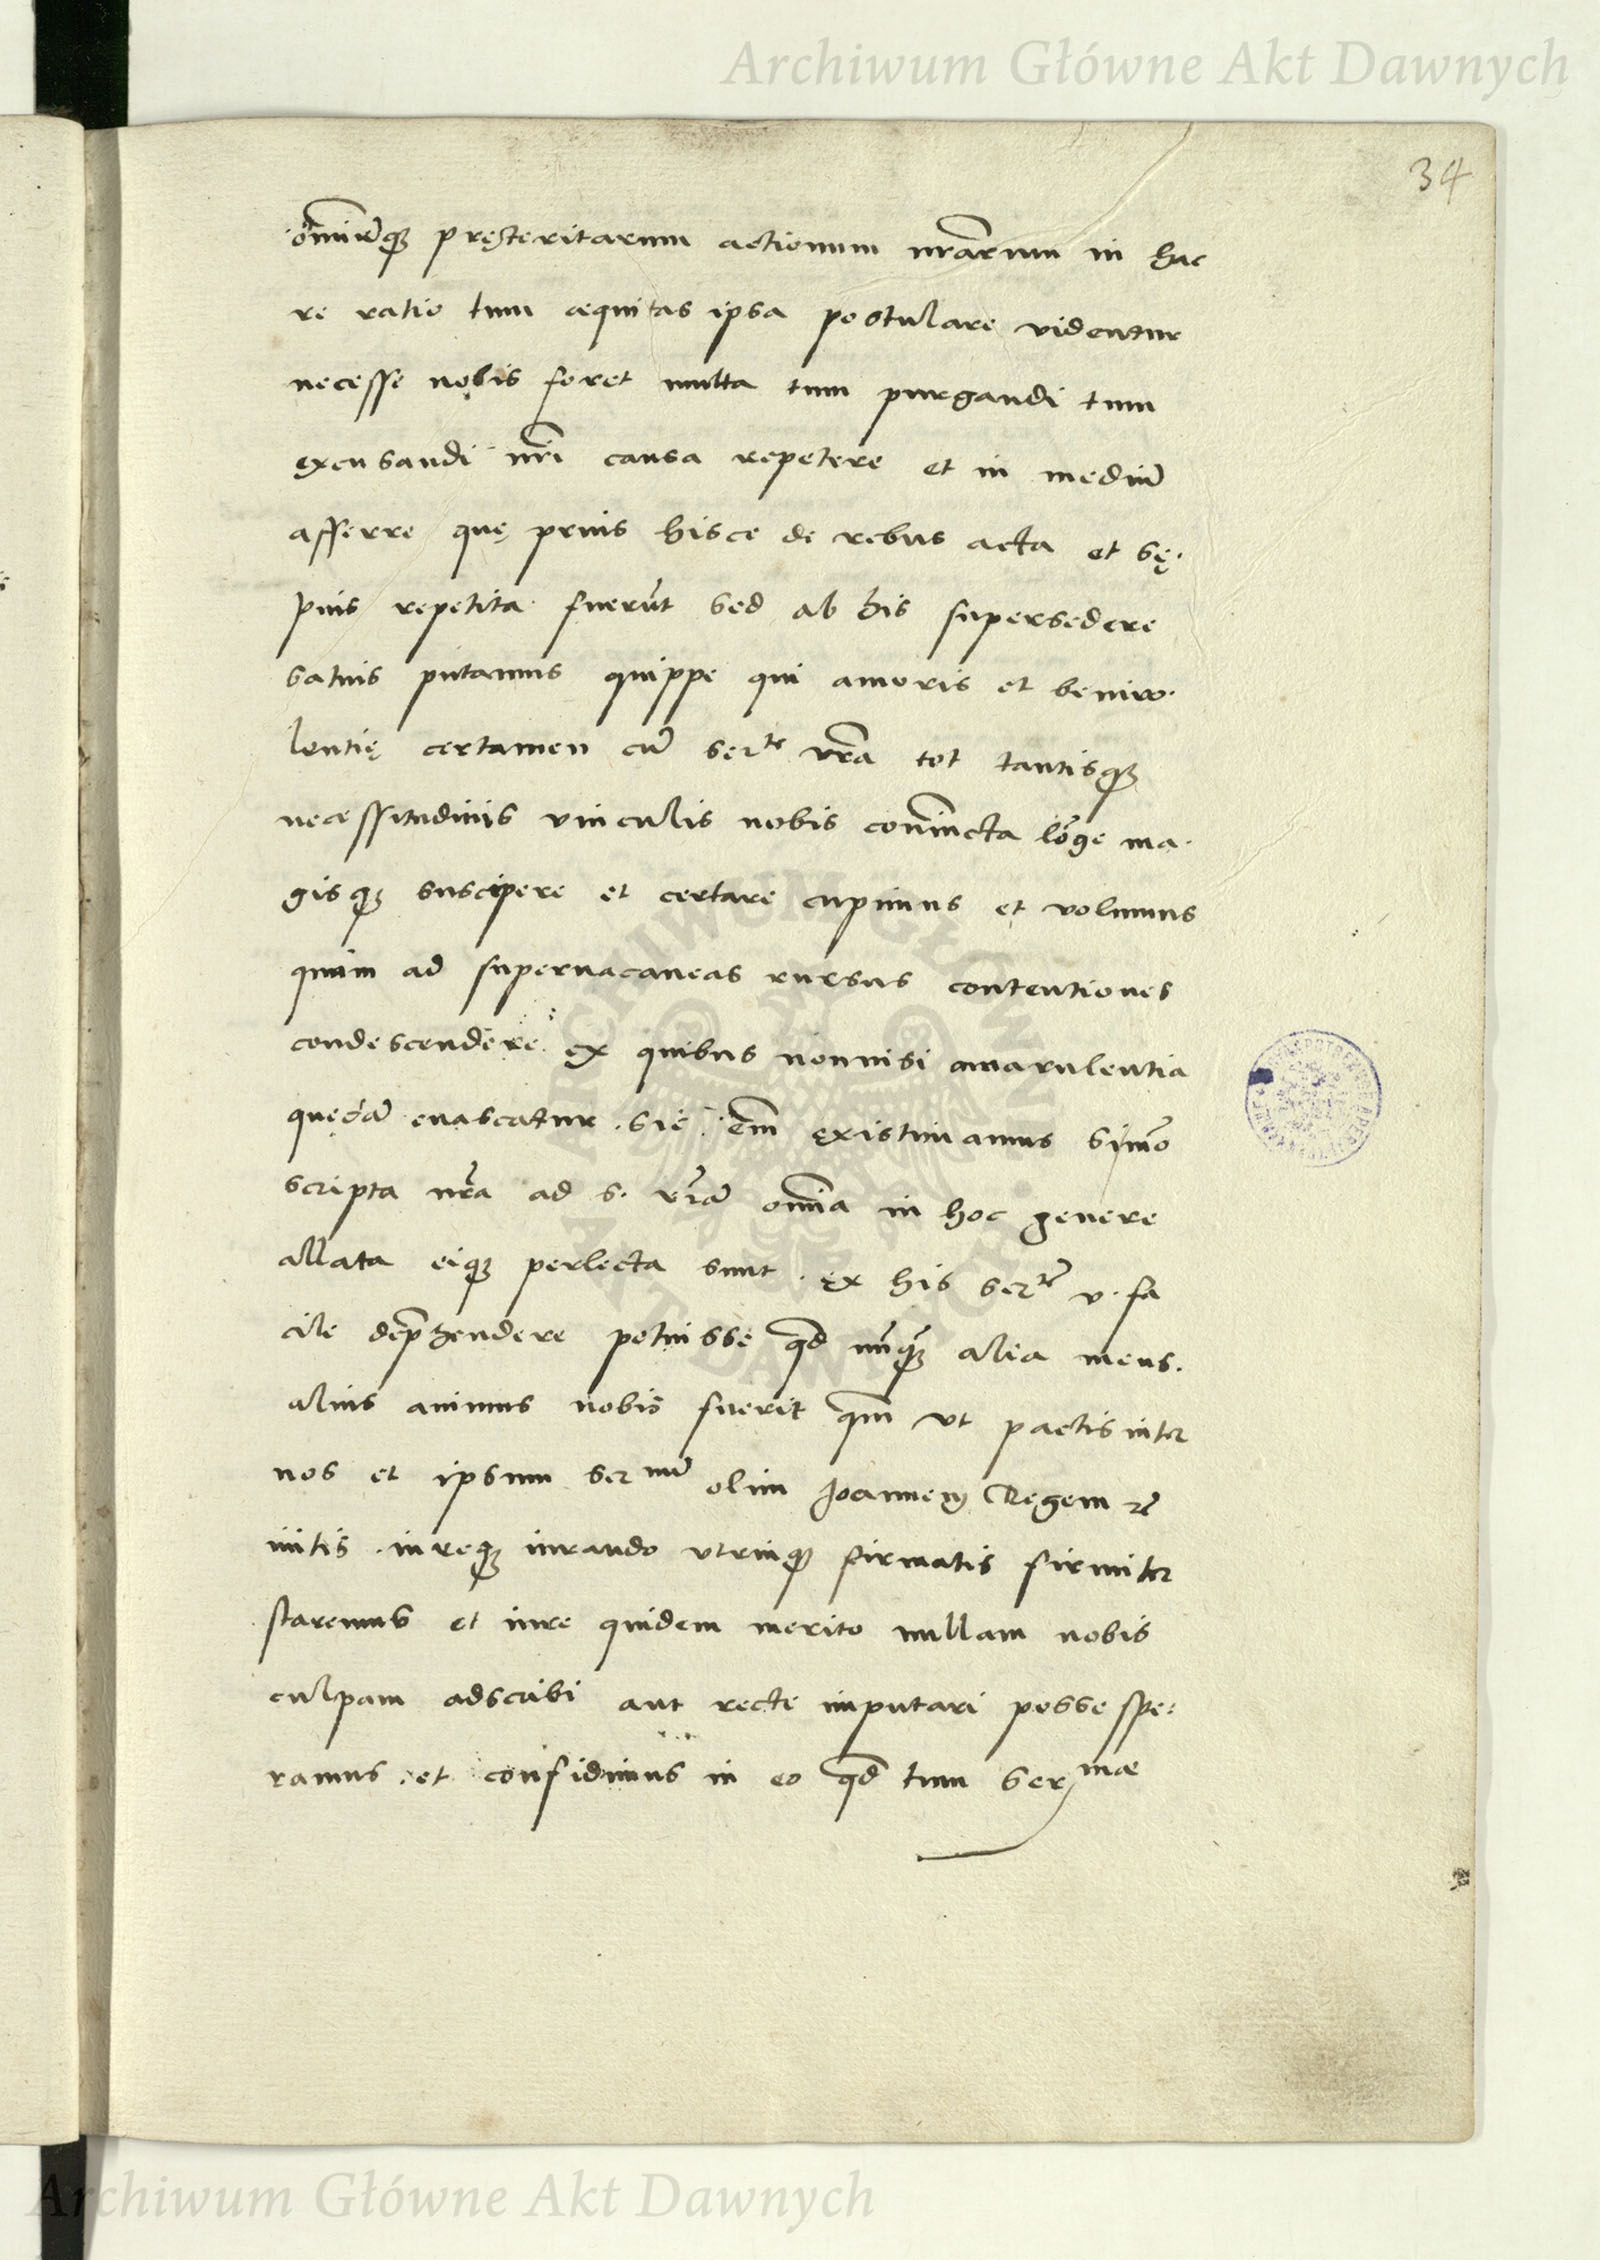 Archiwum Główne Akt Dawnych
34
omniũq₃ pręteritarum actionum nr̃arum in hac
re ratio tum aequitas ipsa postulare videntur
necesse nobis foret multa tum purgandi tum
excusandi nr̃i causa repetere et in mediũ
afferre quę prius hisce de rebus acta et sę.
pius repetita fuerũt sed ab his supersedere
satius putamus quippe qui amoris et benivo.
lentię certamen cũ serte vr̃a tot tantisq₃
necessitudinis vinculis nobis coniuncta lõge ma.
gisq₃ suscipere et certare cupimus et volumus
quam ad supervacaneas rursus contentiones
condescendere ex quibus nonnisi amarulentia
quędã enascatur. sic em̃ existimamus
scripta nr̃a ad s. vr̃ã om̃ia in hoc genere
allata eiq₃ perlecta sunt. ex his sertẽ v. fa
cile dep̃hendere potuisse qd̃ nũq₃ alia mens.
alius animus nobis fuerit qm̃ ut pactis inter
nos et ipsum sermũ olim Joannem Regem
initis. iureq₃ iurando utrinq₃ firmatis firmiter
staremus et iure quidem merito nullam nobis
culpam adscribi aut recte imputari posse spe:
ramus. et confidimus in eo qd̃ tum sermae
Archiwum Główne Akt Dawnych